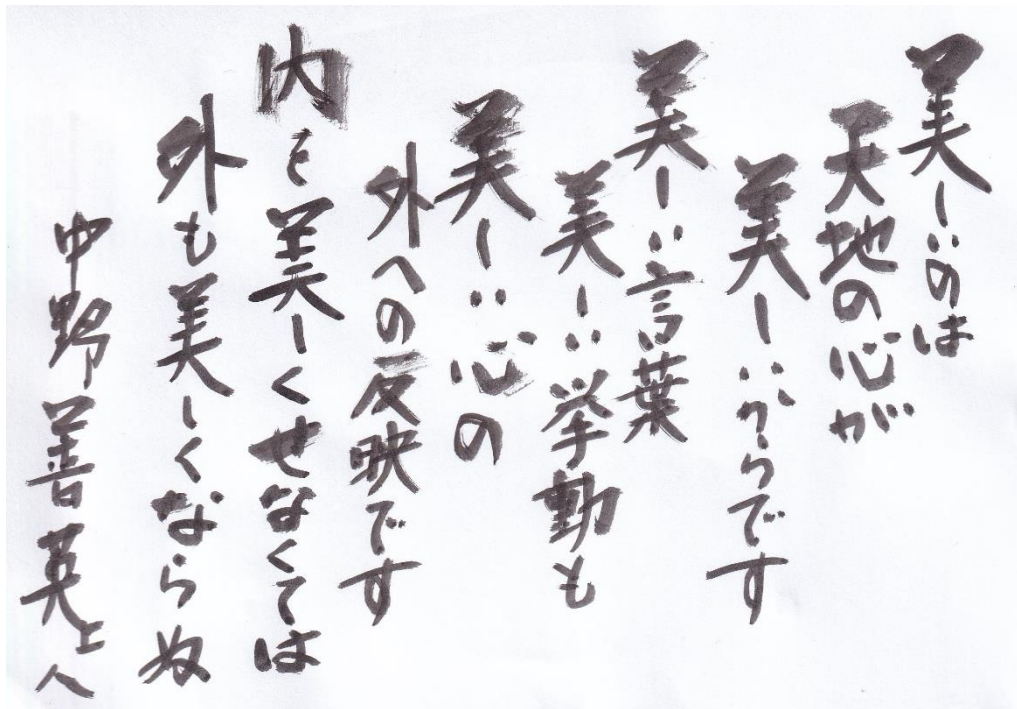 美しいのは
天地の心が
美しいからです
美しい言葉
美しい挙動も
美しい心の
外への反映です
内を美しくせなくては
外も美しくならぬ
中野善英上人